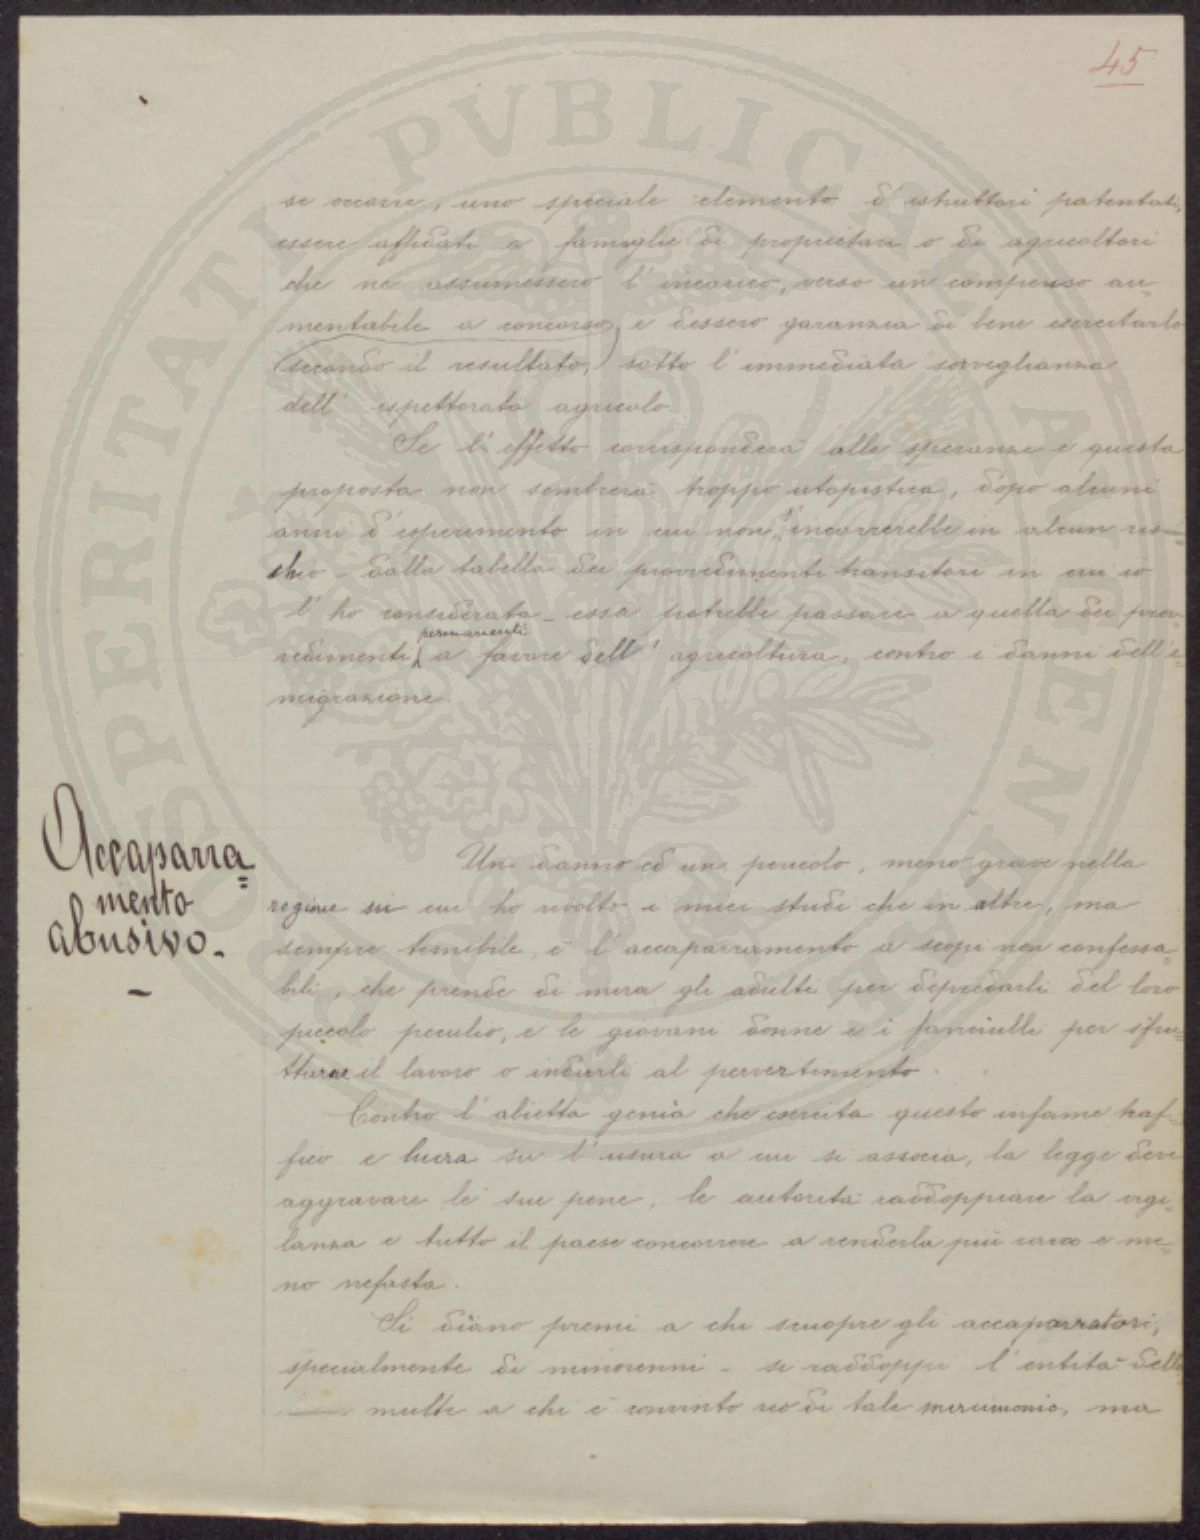 45
se occorre, uno speciale elemento d'istruttori patentati,
essere affidati a famiglie di proprietari o di agricoltori
che ne assumessero l'incarico, verso un compenso au=
mentabile a concorso, e dessero garanzia di bene esercitarlo
(secondo il resultato,) sotto l'immediata sorveglianza
dell'ispettorato agricolo.
Se l'effetto corrisponderà alle speranze e questa
proposta non sembrerà troppo utopistica, dopo alcuni
anni d'esperimento in cui non s'incorrerebbe in alcun ris=
chio - dalla tabella dei provvedimenti transitori in cui io
l'ho considerata - essa potrebbe passare a quella dei prov=
permanenti
vedimenti a favore dell'agricoltura, contro i danni dell'e=
migrazione.
Accaparra=
mento
abusivo.-
Un danno ed un pericolo, meno grave nella
regione su cui ho rivolto i miei studi che in altre, ma
sempre temibile, è l'accaparramento a scopi non confessa=
bili, che prende di mira gli adulti per depredarli del loro
piccolo peculio, e le giovani donne e i fanciulli per sfru=
ttarne il lavoro o indurli al pervertimento.
Contro l'abietta genìa che esercita questo infame traf=
fico e lucra su l'usura a cui si associa, la legge deve
aggravare le sue pene, le autorità raddoppiare la vigi=
lanza e tutto il paese concorrere a renderla più rara e me=
no nefasta.
Si diano premi a chi scuopre gli accaparratori,
specialmente di minorenni - si raddoppi l'entità delle
multe a chi è convinto reo di tale mercimonio, ma
PROSPERITATI PVBLICAE AVGENDAE